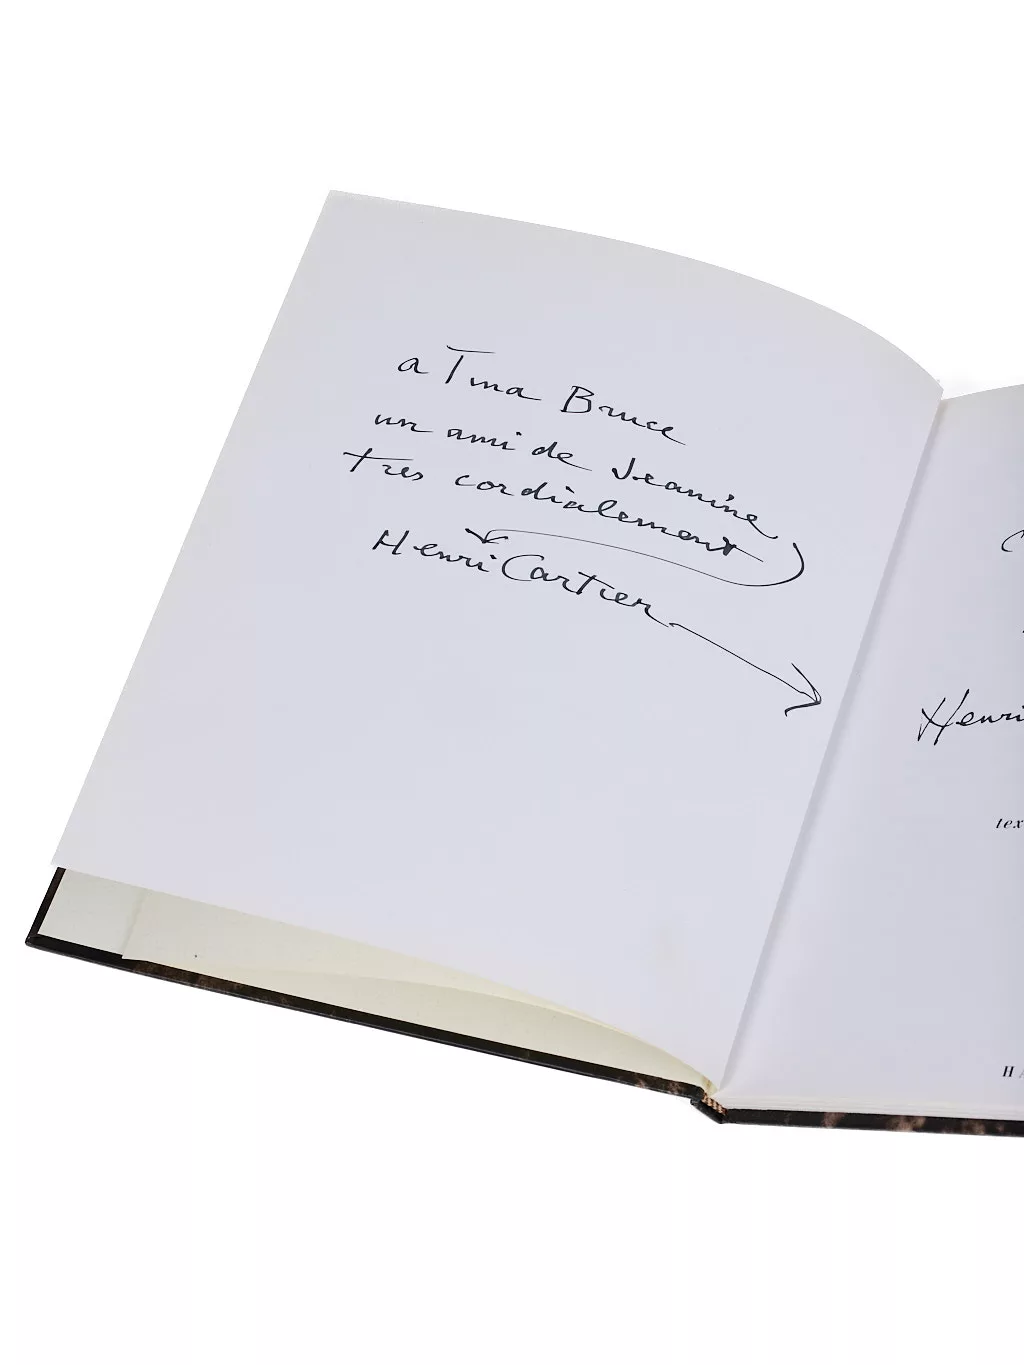 a Tina Bruce
un ami de Jeanine
tres cordialement
Henri Cartier
Henri
tex
HA